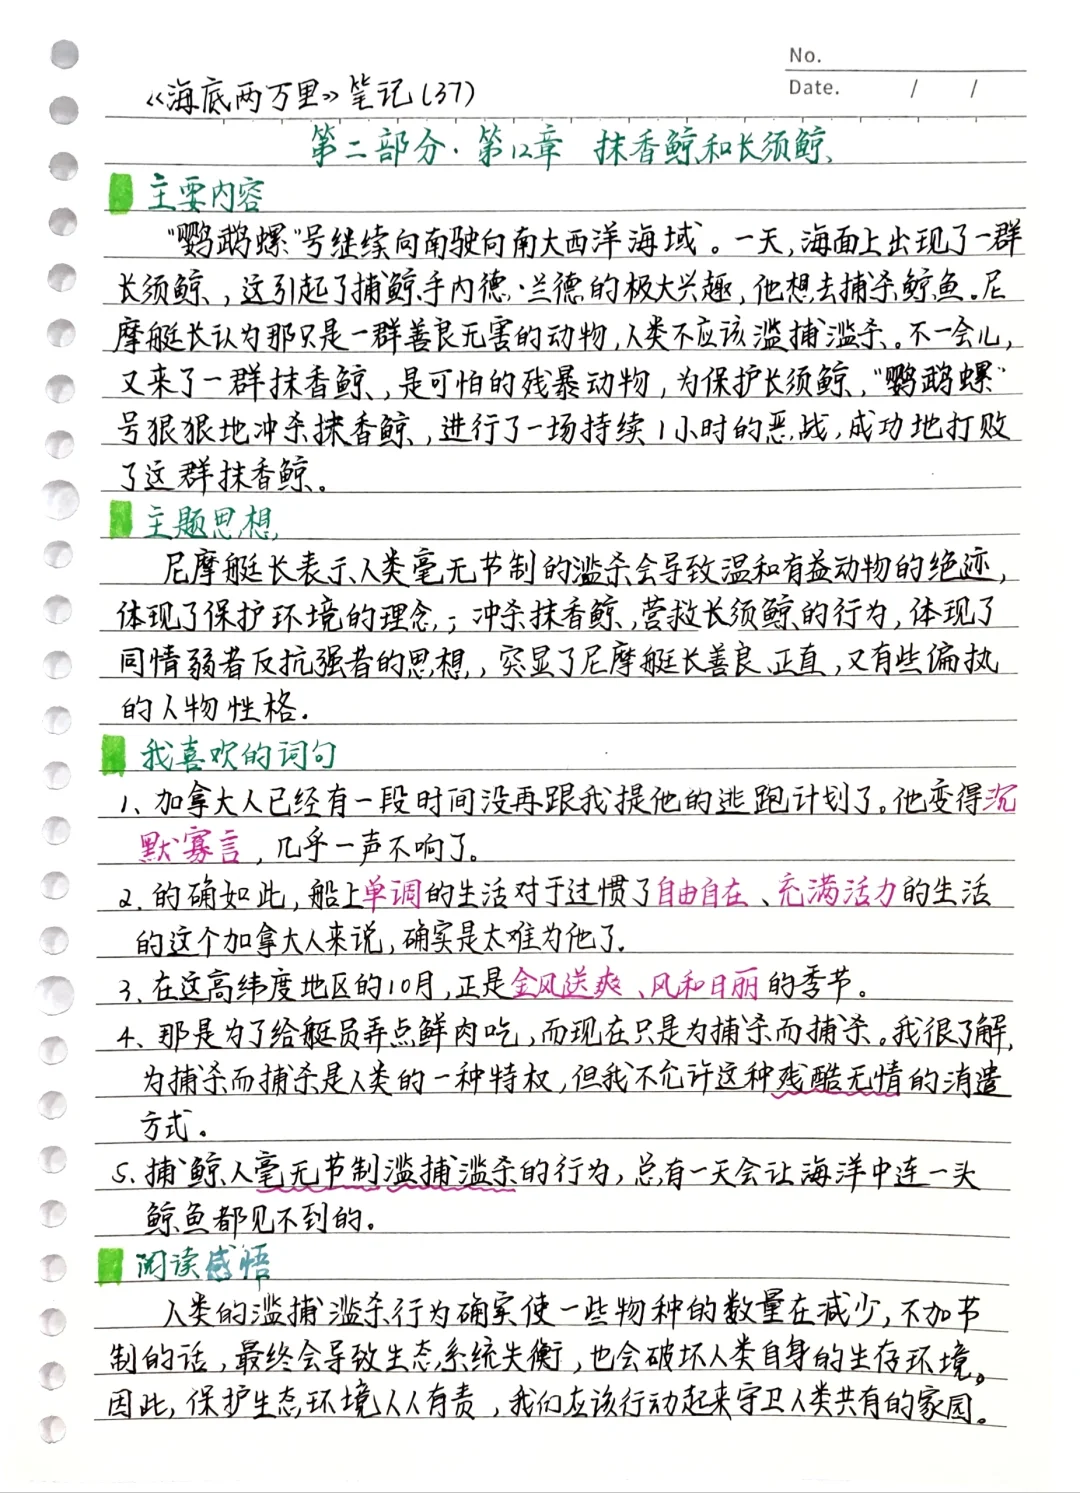 No.
Date. / /
《海底两万里》笔记(37)
第二部分·第12章 抹香鲸和长须鲸
主要内容
"鹦鹉螺"号继续向南驶向南大西洋海域。一天,海面上出现了一群
长须鲸,这引起了捕鲸手内德·兰德的极大兴趣,他想去捕杀鲸鱼。尼
摩艇长认为那只是一群善良无害的动物,人类不应该滥捕滥杀。不一会儿,
又来了一群抹香鲸,是可怕的残暴动物,为保护长须鲸,"鹦鹉螺"
号狠狠地冲杀抹香鲸,进行了一场持续1小时的恶战,成功地打败
了这群抹香鲸。
主题思想
尼摩艇长表示人类毫无节制的滥杀会导致温和有益动物的绝迹,
体现了保护环境的理念;冲杀抹香鲸,营救长须鲸的行为,体现了
同情弱者反抗强者的思想,突显了尼摩艇长善良、正直,又有些偏执
的人物性格.
我喜欢的词句
1、加拿大人已经有一段时间没再跟我提他的逃跑计划了。他变得沉
默寡言,几乎一声不响了。
2、的确如此,船上单调的生活对于过惯了自由自在、充满活力的生活
的这个加拿大人来说,确实是太难为他了.
3、在这高纬度地区的10月,正是金风送爽、风和日丽的季节。
4、那是为了给艇员弄点鲜肉吃,而现在只是为捕杀而捕杀。我很了解,
为捕杀而捕杀是人类的一种特权,但我不允许这种残酷无情的消遣
方式。
5、捕鲸人毫无节制滥捕滥杀的行为,总有一天会让海洋中连一头
鲸鱼都见不到的。
阅读感悟
人类的滥捕滥杀行为确实使一些物种的数量在减少,不加节
制的话,最终会导致生态系统失衡,也会破坏人类自身的生存环境。
因此,保护生态环境人人有责,我们应该行动起来守卫人类共有的家园。